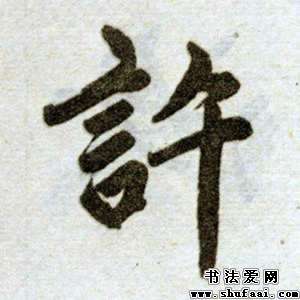 許
书法爱网
www.shufaai.com